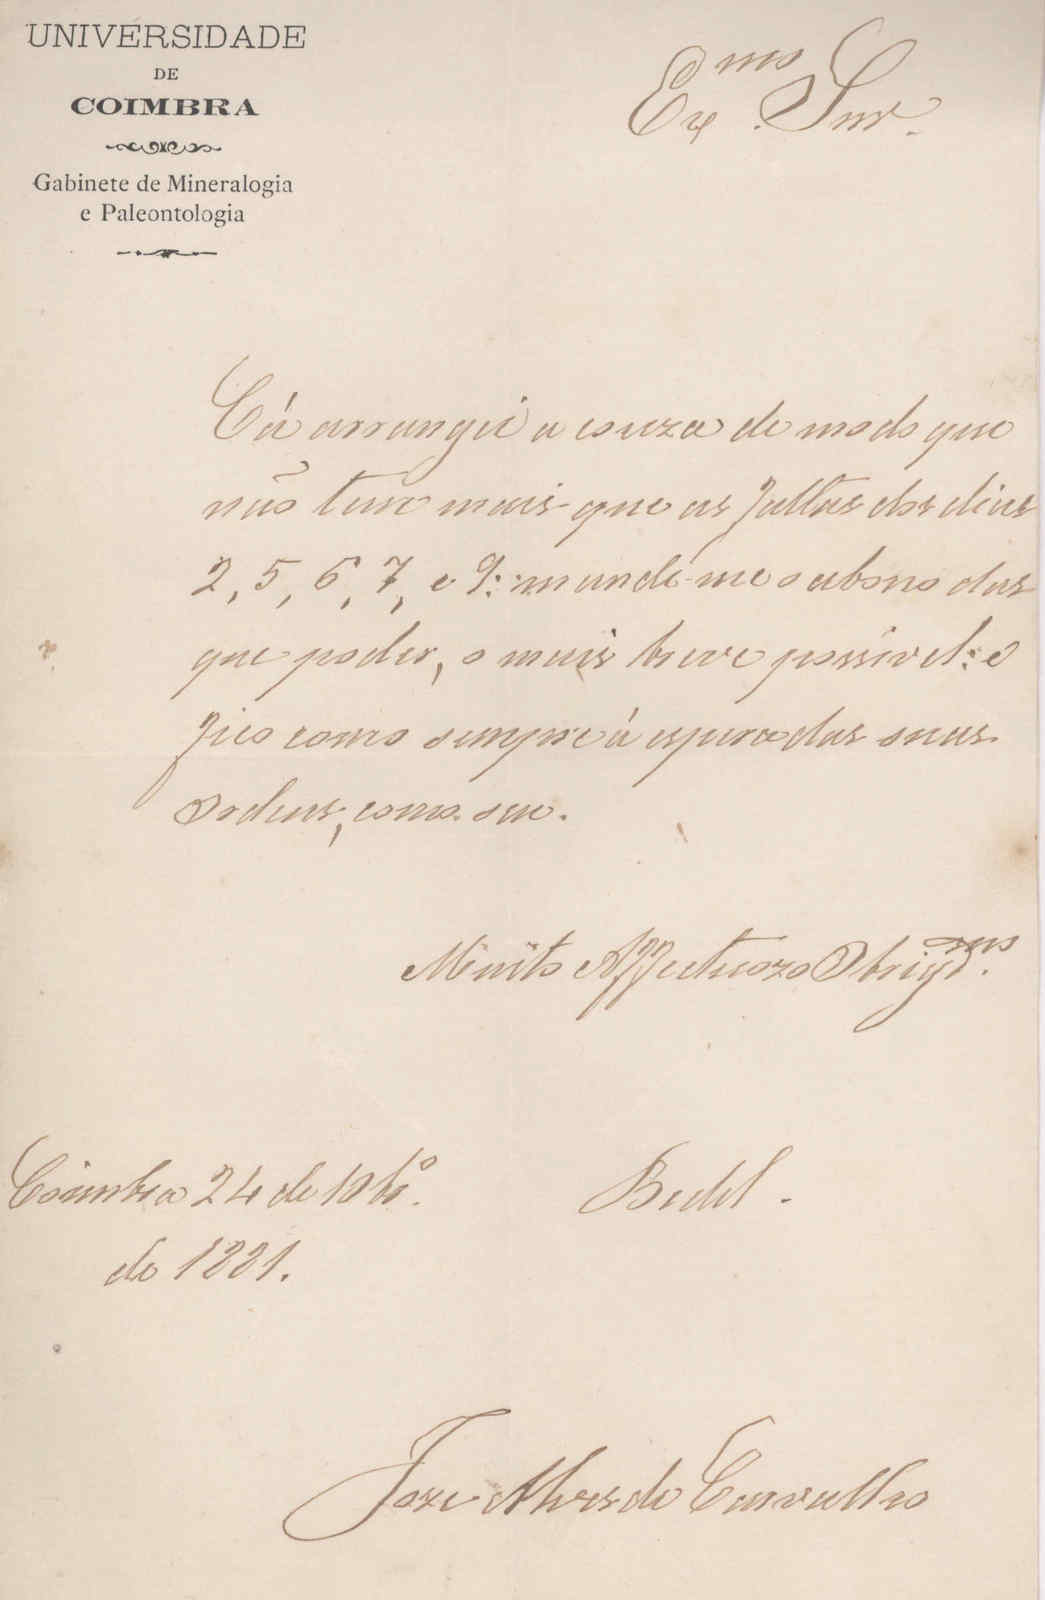 UNIVERSIDADE
DE
COIMBRA
Gabinete de Mineralogia
e Paleontologia
Ex.mo Snr.
Cá arrangei a couza de modo que
não tem mais que as faltas dos dias
2, 5, 6, 7, e 9: mande-me o abono das
que poder, o mais breve possivel: e
fico como sempre á espera das suas
Ordens, como seu.
Muito Affectuozo Obrigd.mo
Coimbra 24 de 10br.o
de 1881.
Bedel.
Joze Alves de Carvalho